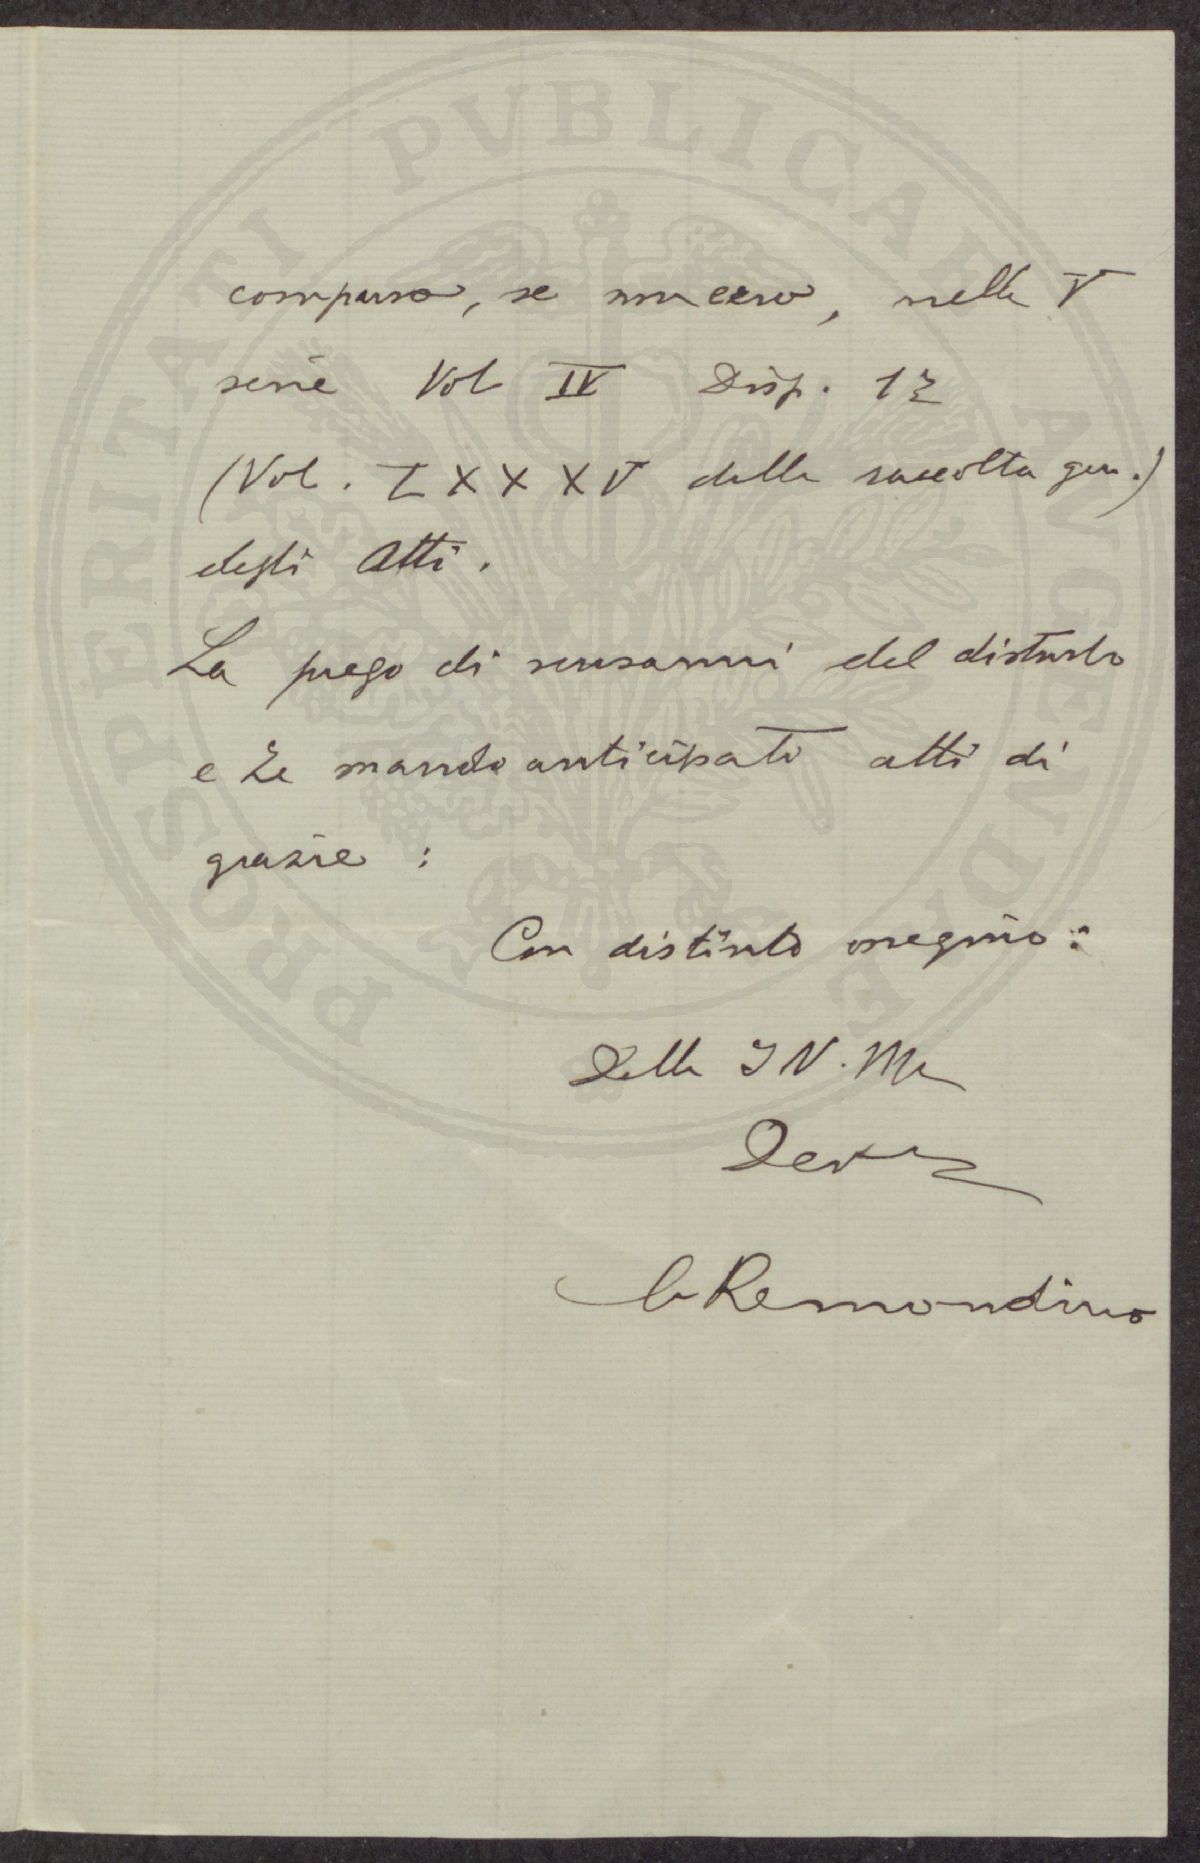 PROSPERITATI PVBLICAE AVGENDAE
comparso, se non erro, nella V
serie Vol IV Disp. 12
(Vol. LXXXV della raccolta gen.)
degli Atti.
La prego di scusarmi del disturbo
e Le mando anticipati atti di
grazie :
Con distinto ossequio :
Della S V. Ma
Dev
Remondino